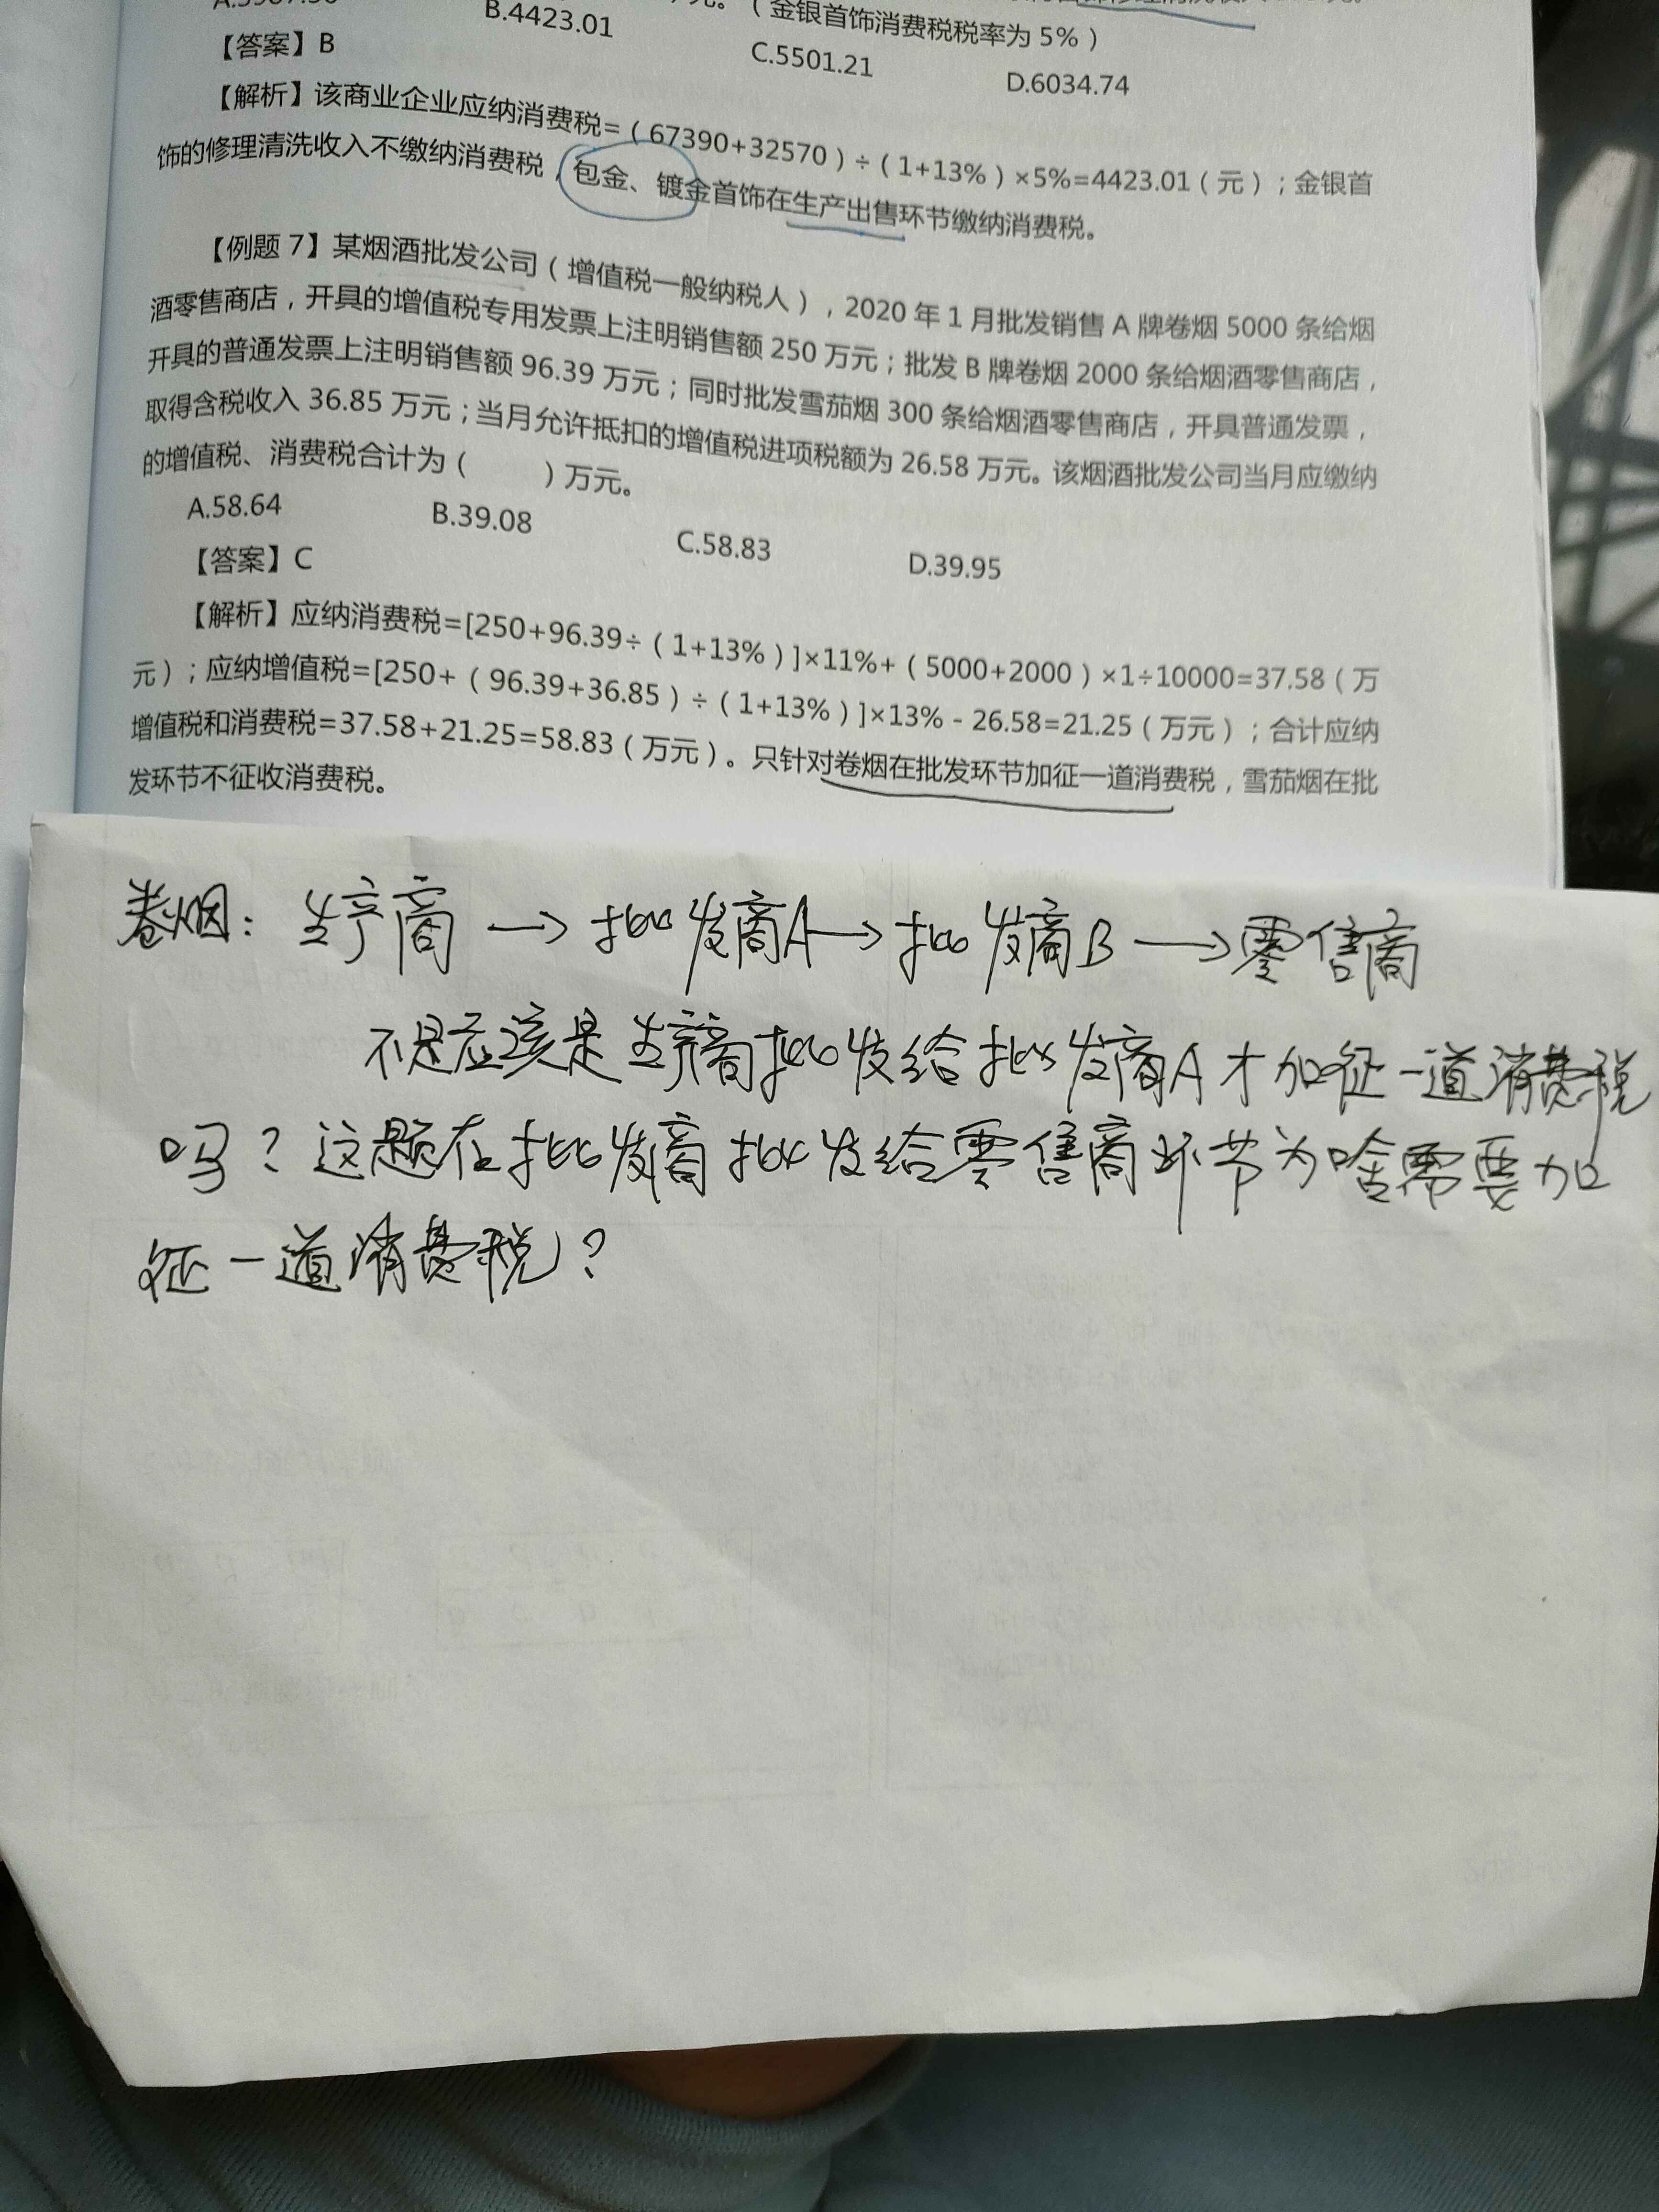 B.4423.01
元。（金银首饰消费税税率为 5%）
C.5501.21
D.6034.74
【答案】B
【解析】该商业企业应纳消费税=（67390+32570）÷（1+13%）×5%=4423.01（元）；金银首
饰的修理清洗收入不缴纳消费税，包金、镀金首饰在生产出售环节缴纳消费税。
【例题 7】某烟酒批发公司（增值税一般纳税人），2020 年 1 月批发销售 A 牌卷烟 5000 条给烟
酒零售商店，开具的增值税专用发票上注明销售额 250 万元；批发 B 牌卷烟 2000 条给烟酒零售商店，
开具的普通发票上注明销售额 96.39 万元；同时批发雪茄烟 300 条给烟酒零售商店，开具普通发票，
取得含税收入 36.85 万元；当月允许抵扣的增值税进项税额为 26.58 万元。该烟酒批发公司当月应缴纳
的增值税、消费税合计为（　　）万元。
A.58.64
B.39.08
C.58.83
D.39.95
【答案】C
【解析】应纳消费税=[250+96.39÷（1+13%）]×11%+（5000+2000）×1÷10000=37.58（万
元）；应纳增值税=[250+（96.39+36.85）÷（1+13%）]×13%－26.58=21.25（万元）；合计应纳
增值税和消费税=37.58+21.25=58.83（万元）。只针对卷烟在批发环节加征一道消费税，雪茄烟在批
发环节不征收消费税。
卷烟：生产商→批发商A→批发商B→零售商
不是应该是生产商批发给批发商A才加征一道消费税
吗？这题在批发商批发给零售商环节为啥需要加
征一道消费税？